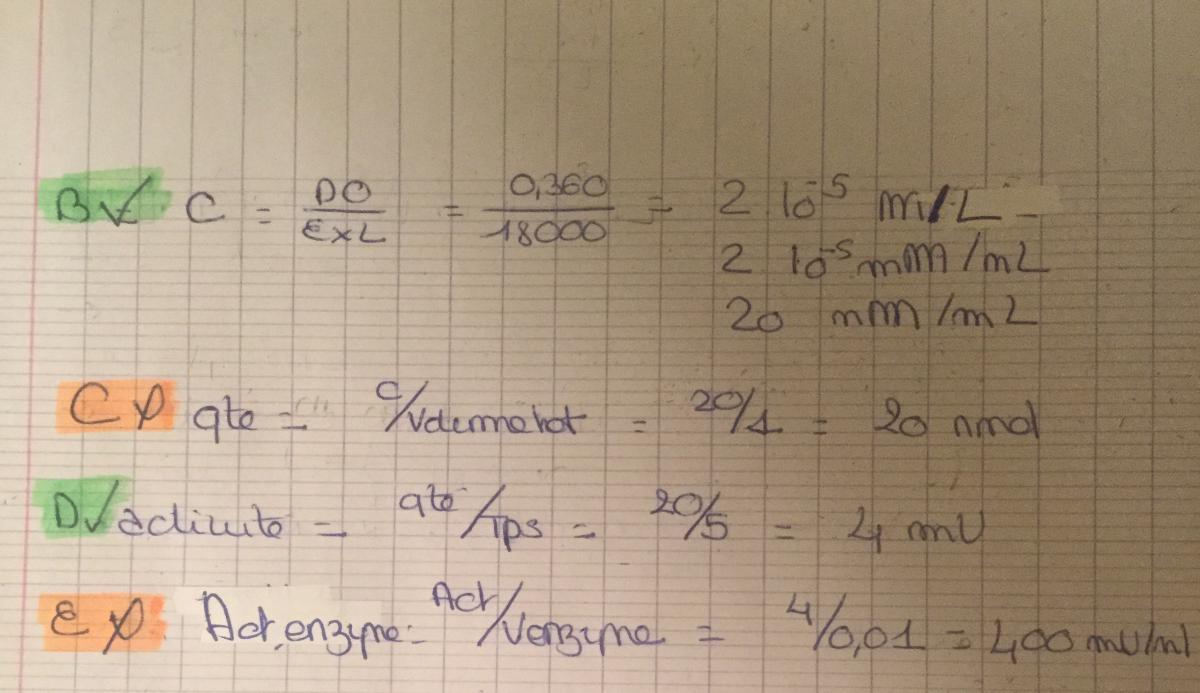 B✓ C = DO / ExL = 0,360 / 18000 = 2 10^-5 m/L
2 10^-5 mM/mL
20 nM/mL
C qte = c/Vdermebot = 20/1 = 20 nmol
D✓ activite = qte/Tps = 20/5 = 4 mU
E Act.enzyme = Act/Venzyme = 4/0,01 = 400 mU/ml